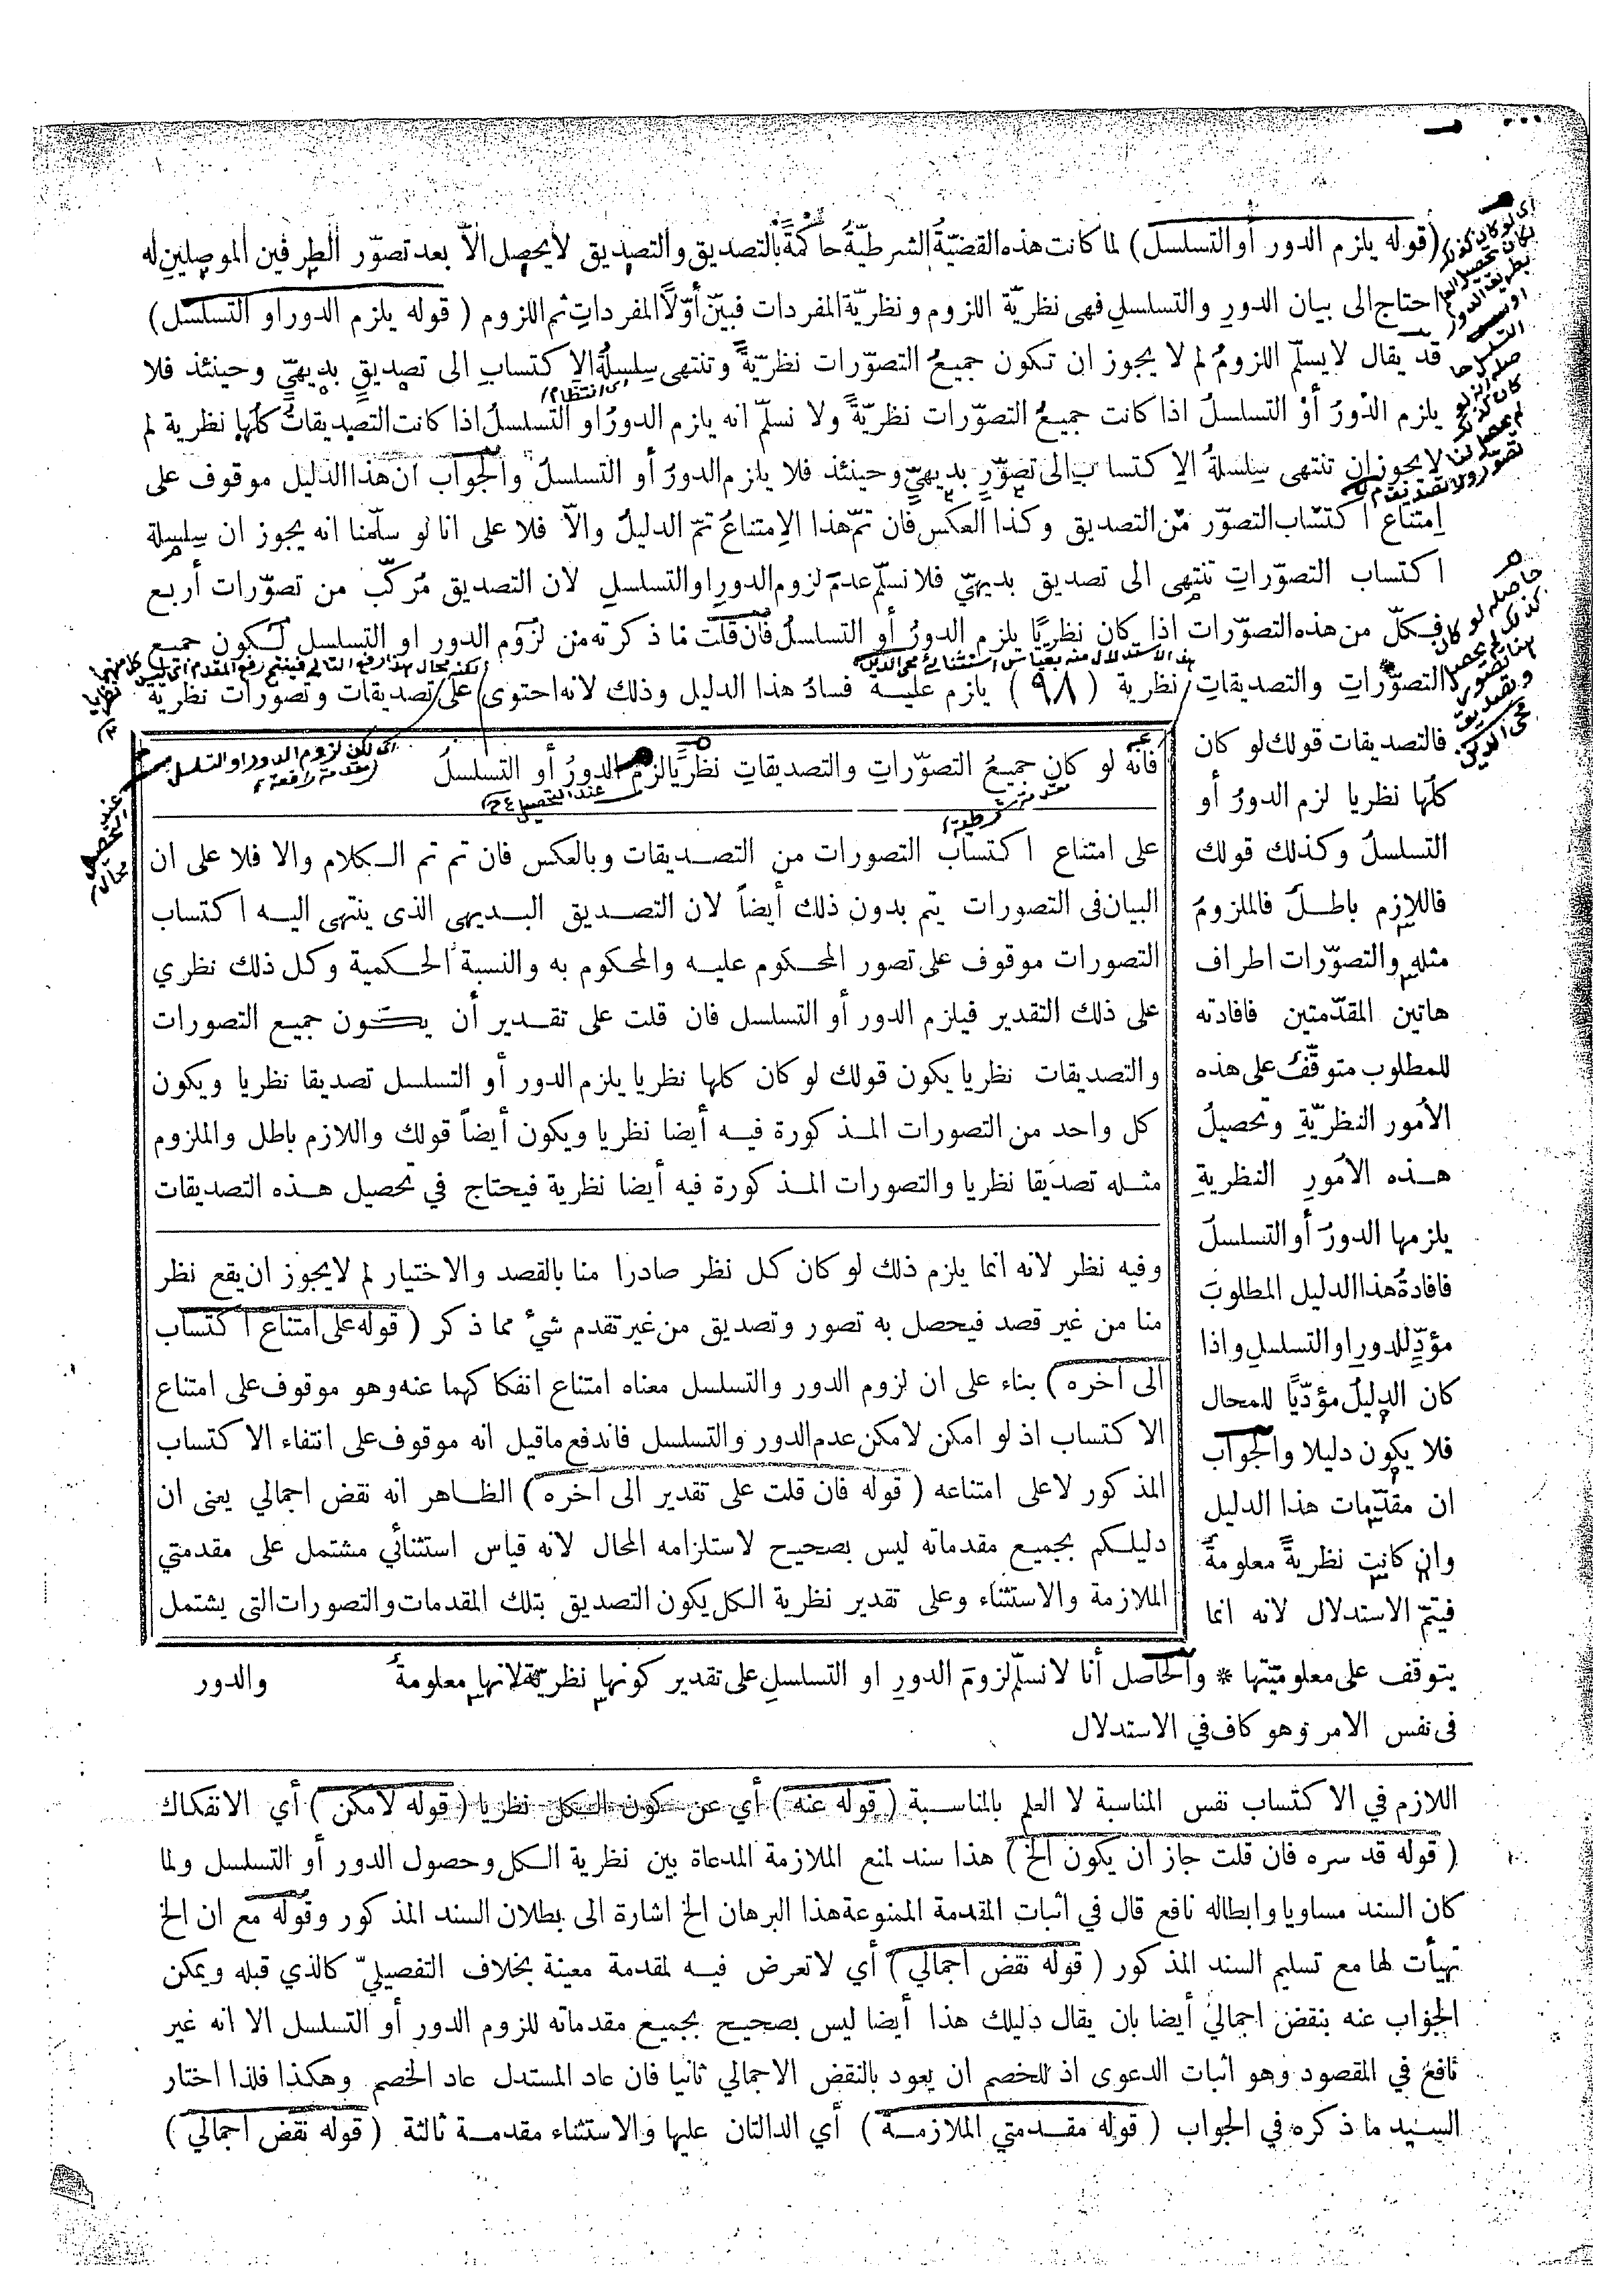 (قوله يلزم الدور أو التسلسل) لما كانت هذه القضيّةُ الشرطيّةُ حاكمةً بالتصديق والتصديق لا يحصل الاّ بعد تصوّر الطرفين الموصلين له
احتاج الى بيان الدورِ والتسلسلِ فهى نظريّة اللزوم ونظريّة المفردات فبيّن أوّلاً المفرداتِ ثم اللزوم (قوله يلزم الدور او التسلسل)
قد يقال لا يسلّم اللزومُ لم لا يجوز ان تكون جميعُ التصوّرات نظريّةً وتنتهى سِلسِلةُ الاِكتسابِ الى تصديقٍ بديهيٍّ وحينئذ فلا
اى انتظام
يلزم الدّورُ أوْ التسلسلُ اذا كانت جميعُ التصوّرات نظريّةً ولا نسلّم انه يلزم الدورُ او التسلسلُ اذا كانت التصديقاتُ كلّها نظرية لم
لا يجوز ان تنتهى سِلسلةُ الاِكتسابِ الى تصوّرٍ بديهيٍّ وحينئذ فلا يلزم الدورُ أو التسلسلُ والجواب ان هذا الدليل موقوف على
اِمتناع اكتساب التصوّر من التصديق وكذا العكس فان تمّ هذا الاِمتناعُ تمّ الدليلُ والاّ فلا على انا لو سلّمنا انه يجوز ان سِلسِلة
اكتساب التصوّراتِ تنتهى الى تصديق بديهيّ فلا نسلّم عدمَ لزوم الدورِ او التسلسلِ لان التصديق مُركّب من تصوّرات أربع
فكلّ من هذه التصوّرات اذا كان نظريًا يلزم الدورُ أو التسلسلُ فان قلت ما ذكرته من لزوم الدور او التسلسل لكون جميع
هذا الاستدلال منه بقياس استثنائى محى الدين
التصوّراتِ والتصديقاتِ نظرية (٩٨) يلزم عليه فسادُ هذا الدليل وذلك لانه احتوى على تصديقات وتصورات نظرية
فالتصديقات قولك لو كان
كلّها نظريا لزم الدورُ أو
التسلسلُ وكذلك قولك
فاللازم باطلٌ فالملزومُ
مثله والتصوّرات اطراف
هاتين المقدّمتين فافادته
للمطلوب متوقّفٌ على هذه
الأمور النظريّةِ وتحصيلُ
هذه الأمورِ النظريةِ
يلزمها الدورُ أو التسلسلُ
فافادةُ هذا الدليل المطلوبَ
مؤدٍّ للدورِ او التسلسلِ واذا
كان الدليلُ مؤدّيًا للمحال
فلا يكون دليلا والجواب
ان مقدّمات هذا الدليل
وان كانت نظريةً معلومةٌ
فيتمّ الاستدلال لانه انما
يتوقف على معلوميّتها * والحاصل أنا لا نسلّم لزومَ الدورِ او التسلسلِ على تقدير كونها نظريّة لانها معلومةٌ
فى نفس الامر وهو كاف في الاستدلال
فانه لو كان جميعُ التصوّراتِ والتصديقاتِ نظريًّا لزم الدورُ أو التسلسلُ
اى لكن لزوم الدور او التسلسل
مقدمة رافعة
عند التحصيل
على امتناع اكتساب التصورات من التصديقات وبالعكس فان تم تم الكلام والا فلا على ان
البيان فى التصورات يتم بدون ذلك أيضاً لان التصديق البديهى الذى ينتهى اليه اكتساب
التصورات موقوف على تصور المحكوم عليه والمحكوم به والنسبة الحكمية وكل ذلك نظري
على ذلك التقدير فيلزم الدور أو التسلسل فان قلت على تقدير أن يكون جميع التصورات
والتصديقات نظريا يكون قولك لو كان كلها نظريا يلزم الدور أو التسلسل تصديقا نظريا ويكون
كل واحد من التصورات المذكورة فيه أيضا نظريا ويكون أيضاً قولك واللازم باطل والملزوم
مثله تصديقا نظريا والتصورات المذكورة فيه أيضا نظرية فيحتاج في تحصيل هذه التصديقات
وفيه نظر لانه انما يلزم ذلك لو كان كل نظر صادرا منا بالقصد والاختيار لم لا يجوز ان يقع نظر
منا من غير قصد فيحصل به تصور وتصديق من غير تقدم شئ مما ذكر (قوله على امتناع اكتساب
الى آخره) بناء على ان لزوم الدور والتسلسل معناه امتناع انفكاكهما عنه وهو موقوف على امتناع
الاكتساب اذ لو امكن لامكن عدم الدور والتسلسل فاندفع ماقيل انه موقوف على انتفاء الاكتساب
المذكور لا على امتناعه (قوله فان قلت على تقدير الى آخره) الظاهر انه نقض اجمالي يعنى ان
دليلكم بجميع مقدماته ليس بصحيح لاستلزامه المحال لانه قياس استثنائي مشتمل على مقدمتي
الملازمة والاستثناء وعلى تقدير نظرية الكل يكون التصديق بتلك المقدمات والتصورات التى يشتمل
والدور
اللازم في الاكتساب نفس المناسبة لا العلم بالمناسبة (قوله عنه) أي عن كون الكل نظريا (قوله لامكن) أي الانفكاك
(قوله قد سره فان قلت جاز ان يكون الخ) هذا سند لمنع الملازمة المدعاة بين نظرية الكل وحصول الدور أو التسلسل ولما
كان السند مساويا وابطاله نافع قال في اثبات المقدمة الممنوعة هذا البرهان الخ اشارة الى بطلان السند المذكور وقوله مع ان الخ
تهيأت لها مع تسليم السند المذكور (قوله نقض اجمالي) أي لا تعرض فيه لمقدمة معينة بخلاف التفصيليّ كالذي قبله ويمكن
الجواب عنه بنقض اجمالي أيضا بان يقال دليلك هذا أيضا ليس بصحيح بجميع مقدماته للزوم الدور أو التسلسل الا انه غير
نافع في المقصود وهو اثبات الدعوى اذ للخصم ان يعود بالنقض الاجمالي ثانيا فان عاد المستدل عاد الخصم وهكذا فلذا اختار
السيد ما ذكره في الجواب (قوله مقدمتي الملازمة) أي الدالتان عليها والاستثناء مقدمة ثالثة (قوله نقض اجمالي)